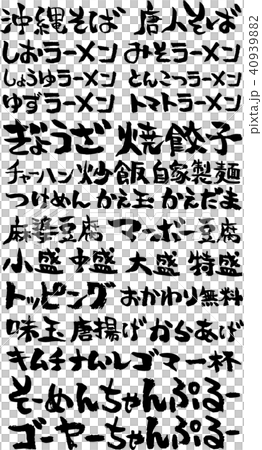 沖縄そば 唐人そば
しおラーメン みそラーメン
しょうゆラーメン とんこつラーメン
ゆずラーメン トマトラーメン
ぎょうざ 焼餃子
チャーハン 炒飯 自家製麺
つけめん かえ玉 かえだま
麻婆豆腐 マーボー豆腐
小盛 中盛 大盛 特盛
トッピング おかわり無料
味玉 唐揚げ からあげ
キムチ ナムル ゴマ 一杯
そーめんちゃんぷるー
ゴーヤーちゃんぷるー
40939882